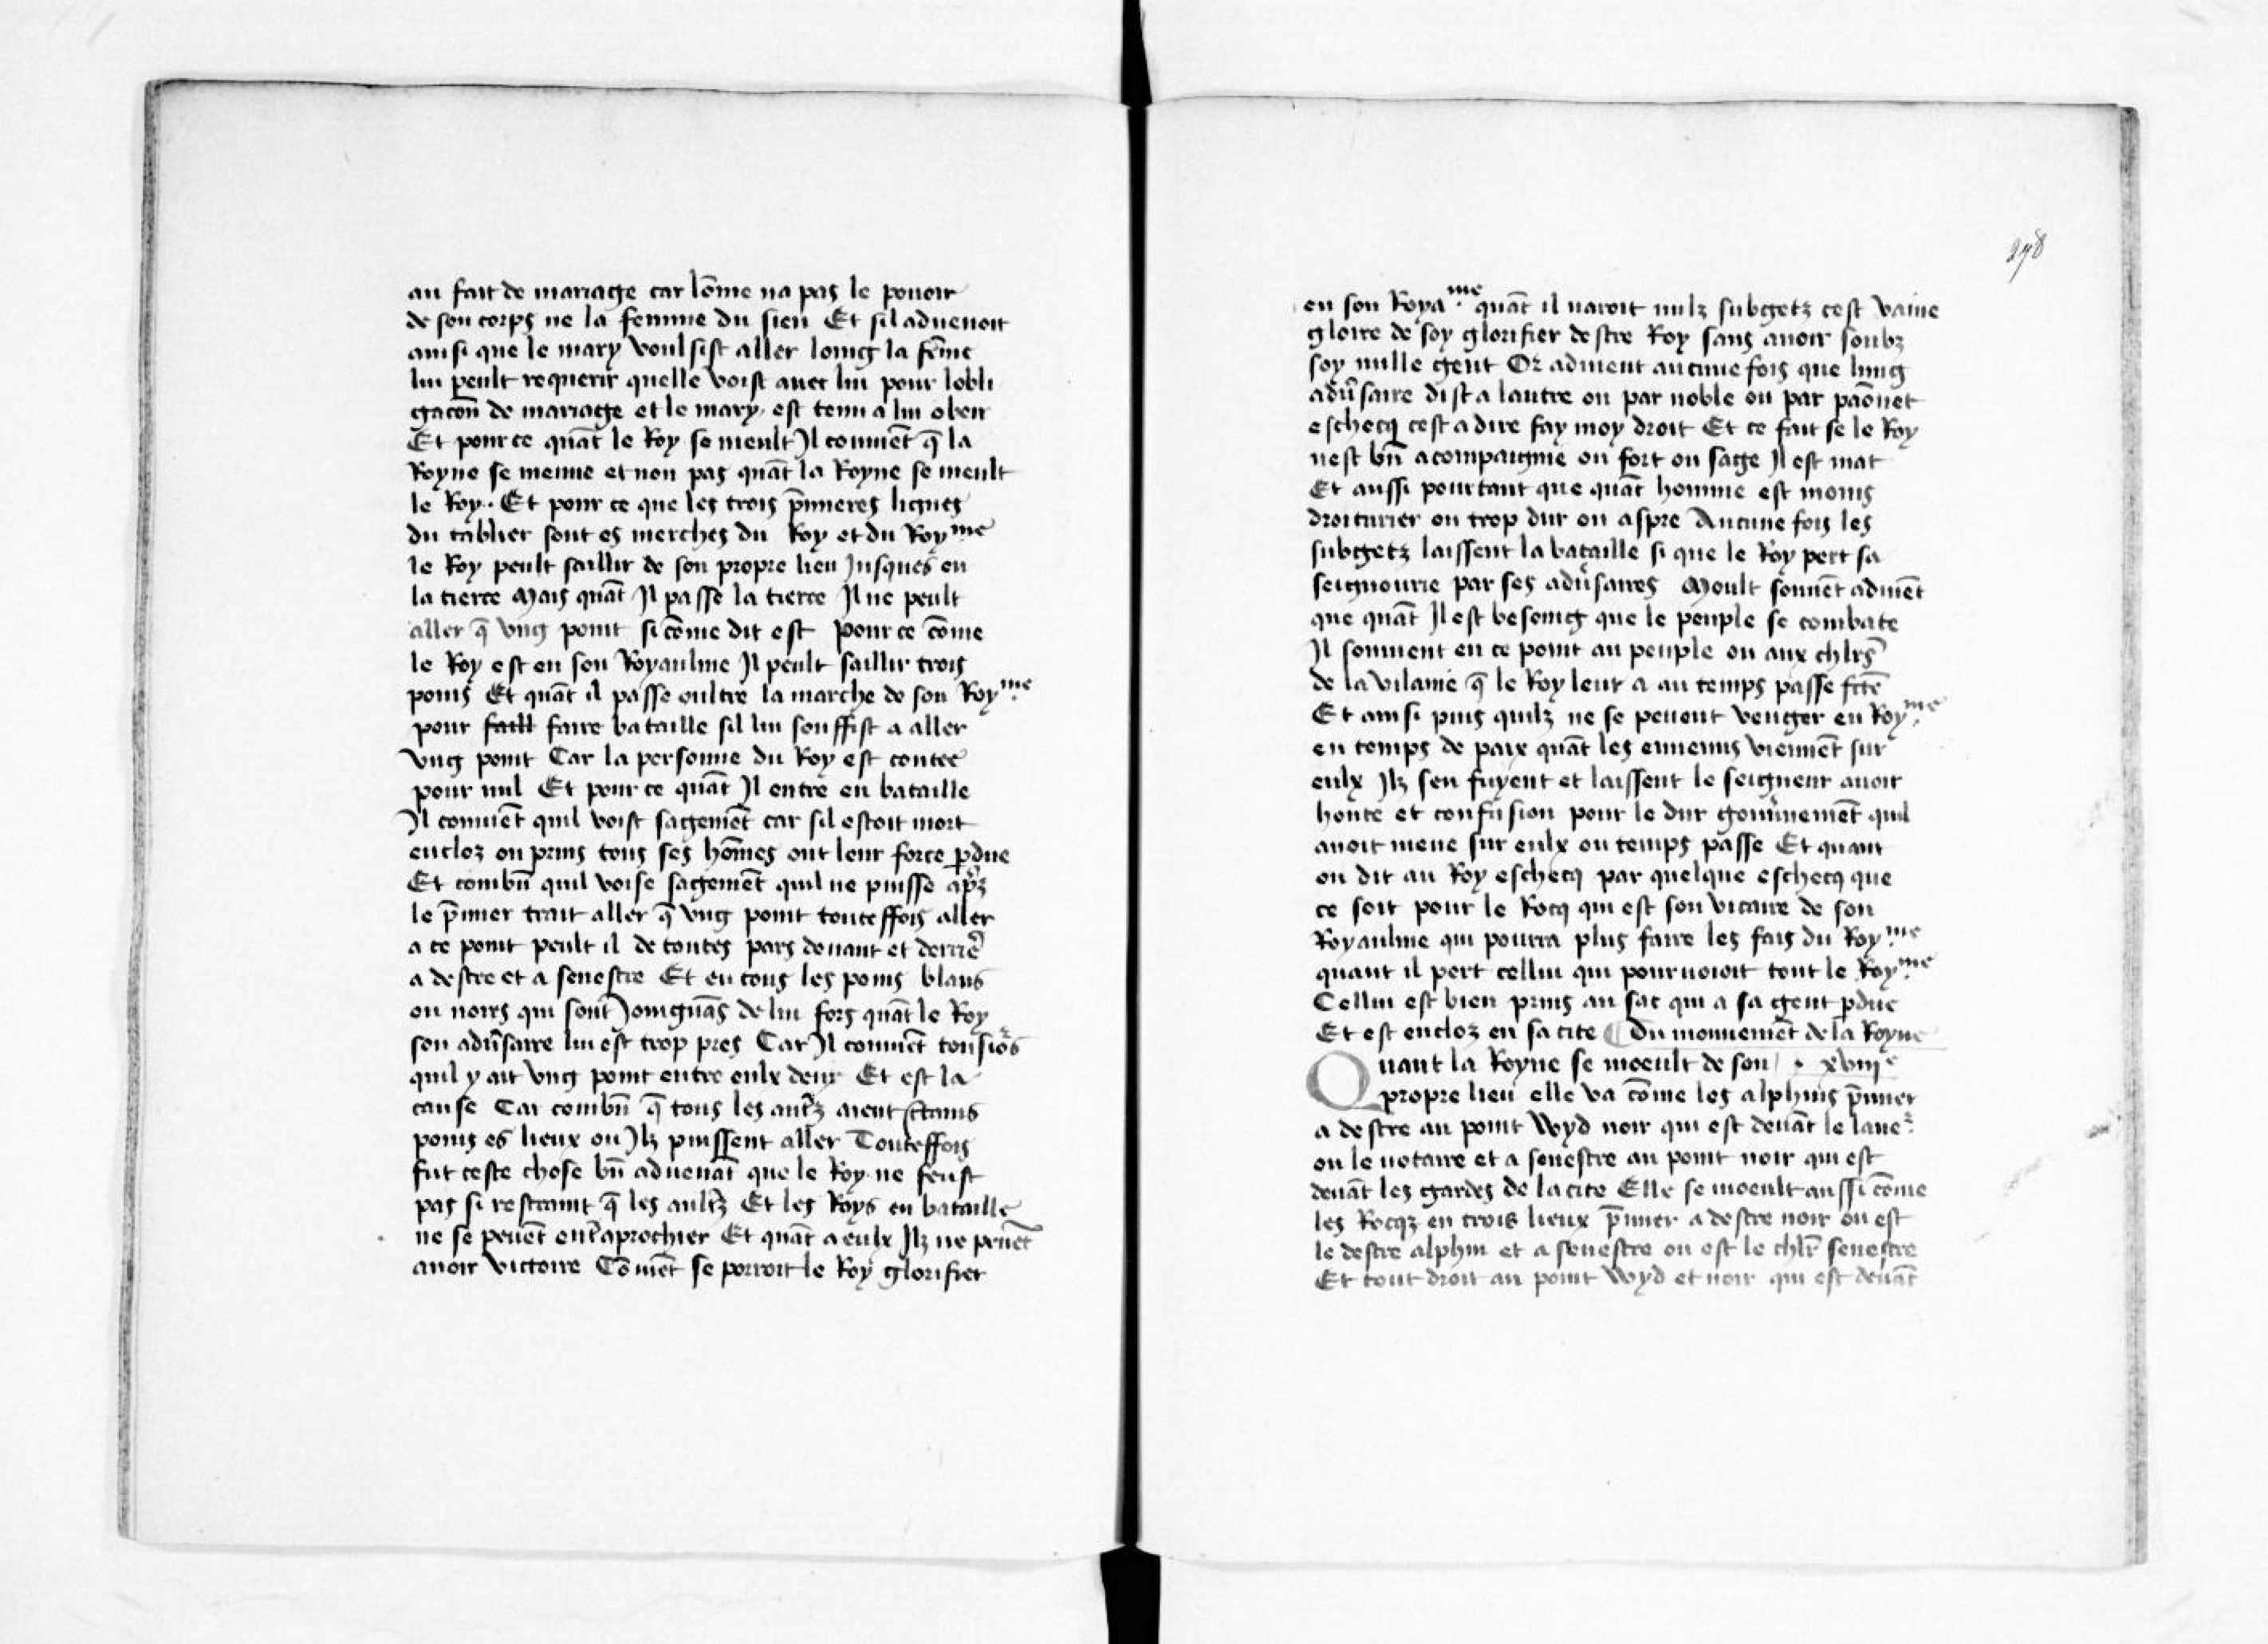 au fait de mariage car lom̄e na pas le pouoir
de son corps ne la femme du sien Et sil aduenoit
ainsi que le mary voulsist aller loing la fēme
lui peult requerir quelle voist auec lui pour lobli
gacōn de mariage et le mary est tenu a lui obeir
Et pour ce quāt le Roy se meult Il conuiēt q̄ la
Royne se meuue et non pas quāt la Royne se meult
le Roy. Et pour ce que les trois p̄mieres lignes
du tablier sont es merches du Roy et du Royme
le Roy peult saillir de son propre lieu Jusques en
la tierce Mais quāt Il passe la tierce Il ne peult
aller q̄ vng point si cōme dit est pour ce cōme
le Roy est en son Royaulme Il peult saillir trois
poins Et quāt il passe oultre la marche de son Royme
pour faill faire bataille sil lui souffist a aller
vng point Car la personne du Roy est contee
pour mil Et pour ce quāt Il entre en bataille
Il conuiēt quil voist sagemēt car sil estoit mort
encloz ou prins tous ses hōmes ont leur force p̱due
Et combn̄ quil voise sagemēt quil ne puisse ap̄z
le p̄mier trait aller q̄ vng point touteffois aller
a ce point peult il de toutes pars deuant et derrie᷑
a destre et a senestre Et en tous les poins blans
ou noirs qui sont Joingnās de lui fors quāt le Roy
son adu᷑saire lui est trop pres Car Il conuiēt tousio᷑s
quil y ait vng point entre eulx deux Et est la
cause Car combn̄ q̄ tous les aut᷑z aient ctains
poins es lieux ou Ilz puissent aller Touteffois
fut ceste chose bn̄ aduenāt que le Roy ne feust
pas si restraint q̄ les ault᷑z Et les Roys en bataille
ne se peuēt ent᷑aprochier Et quāt a eulx Ilz ne peuēt
auoir victoire Cōmēt se porroit le Roy glorifier
298
en son Royame quāt il naroit nulz subgetz cest vaine
gloire de soy glorifier destre Roy sans auoir soubz
soy nulle gent Or aduient aucune fois que lung
adu᷑saire dist a lautre ou par noble ou par paōnet
eschecq cest a dire fay moy droit Et ce fait se le Roy
nest bn̄ acompaignie ou fort ou sage Il est mat
Et aussi pourtant que quāt homme est moins
droiturier ou trop dur ou aspre Aucune fois les
subgetz laissent la bataille si que le Roy pert sa
seignourie par ses adu᷑saires Moult souuēt aduiēt
que quāt Il est besoing que le peuple se combate
Il souuient en ce point au peuple ou aux chlr̄s
de la vilanie q̄ le Roy leur a au temps passe fc̄te
Et ainsi puis quilz ne se peuent venger en Royme
en temps de paix quāt les ennemis viennēt sur
eulx Ilz sen fuyent et laissent le seigneur auoir
honte et confusion pour le dur gouu᷑nemēt quil
auoit mene sur eulx ou temps passe Et quant
on dit au Roy eschecq par quelque eschecq que
ce soit pour le Rocq qui est son vicaire de son
Royaulme qui pourra plus faire les fais du Royme
quant il pert cellui qui pourueoit tout le Royme
Cellui est bien prins au sac qui a sa gent p̱due
Et est encloz en sa cite ¶ Du mouuemēt de la Royne
Quant la Royne se moeult de son . xviije
propre lieu elle va cōme les alphins p̄mier
a destre au point wyd noir qui est deuāt le lane᷑
ou le notaire et a senestre au point noir qui est
deuāt les gardes de la cite Elle se moeult aussi cōme
les Rocqz en trois lieux p̄mier a destre noir ou est
le destre alphin et a senestre ou est le chlr̄ senestre
Et tout droit au point wyd et noir qui est deuāt